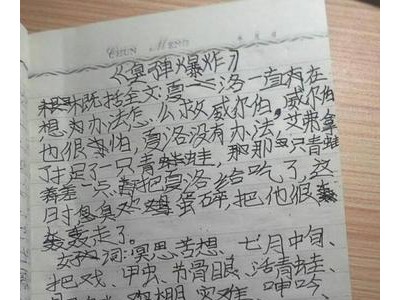 CHUN MENG
《臭弹爆炸》
概括全文:夏洛一直有在
想为办法怎么救威尔伯,威尔伯
也很害怕,夏洛没有办法,艾弗拿
了一只青蛙,那只青蛙
差一点把夏洛给吃了,这
时臭鸡蛋碎,把他很
轰走了。
好词:冥思苦想、七月中旬、
把戏、甲虫、节骨眼、活青蛙、
棚、灾难、呻吟